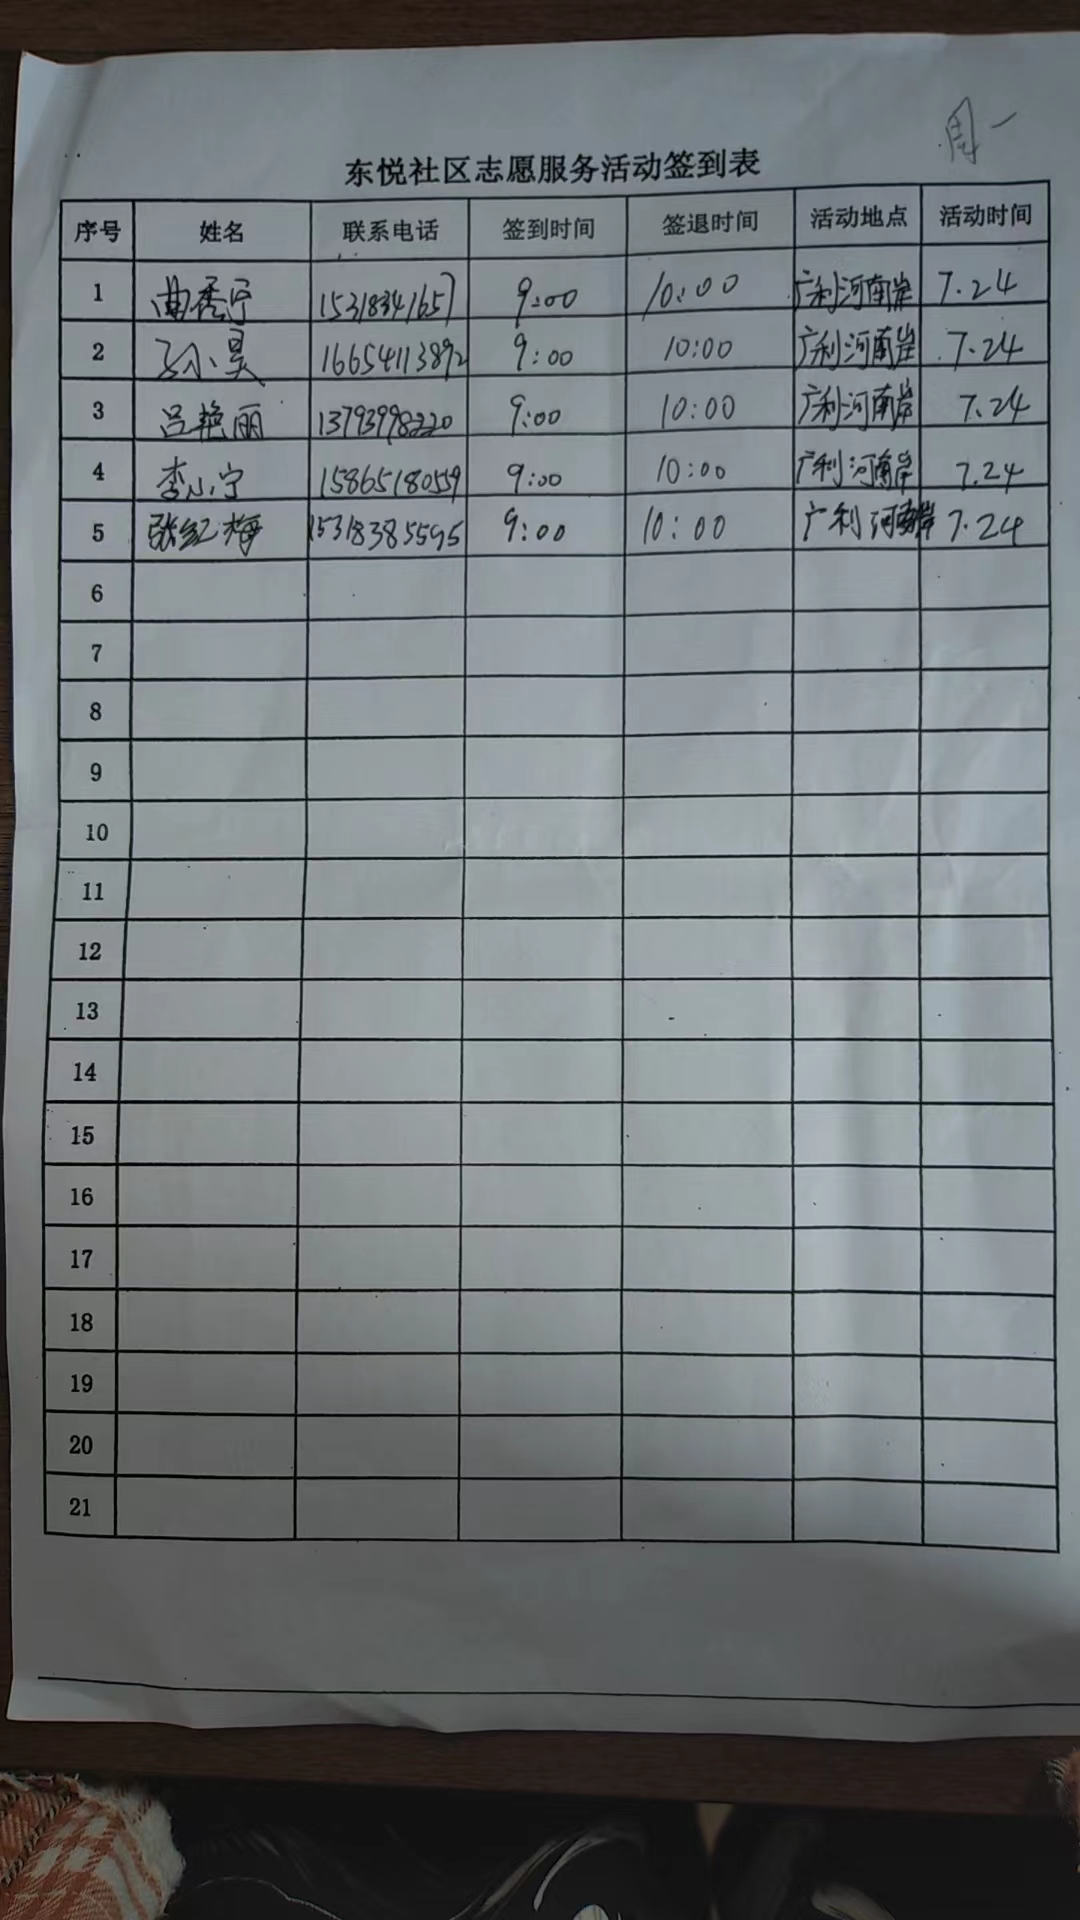 周一
东悦社区志愿服务活动签到表
序号 姓名 联系电话 签到时间 签退时间 活动地点 活动时间
1 曲秀宁 15318341657 9:00 10:00 广利河南岸 7.24
2 孙昊 16654113892 9:00 10:00 广利河南岸 7.24
3 吕艳丽 13793998220 9:00 10:00 广利河南岸 7.24
4 李小宁 15865180559 9:00 10:00 广利河南岸 7.24
5 张红梅 15318385595 9:00 10:00 广利河南岸 7.24
6
7
8
9
10
11
12
13
14
15
16
17
18
19
20
21